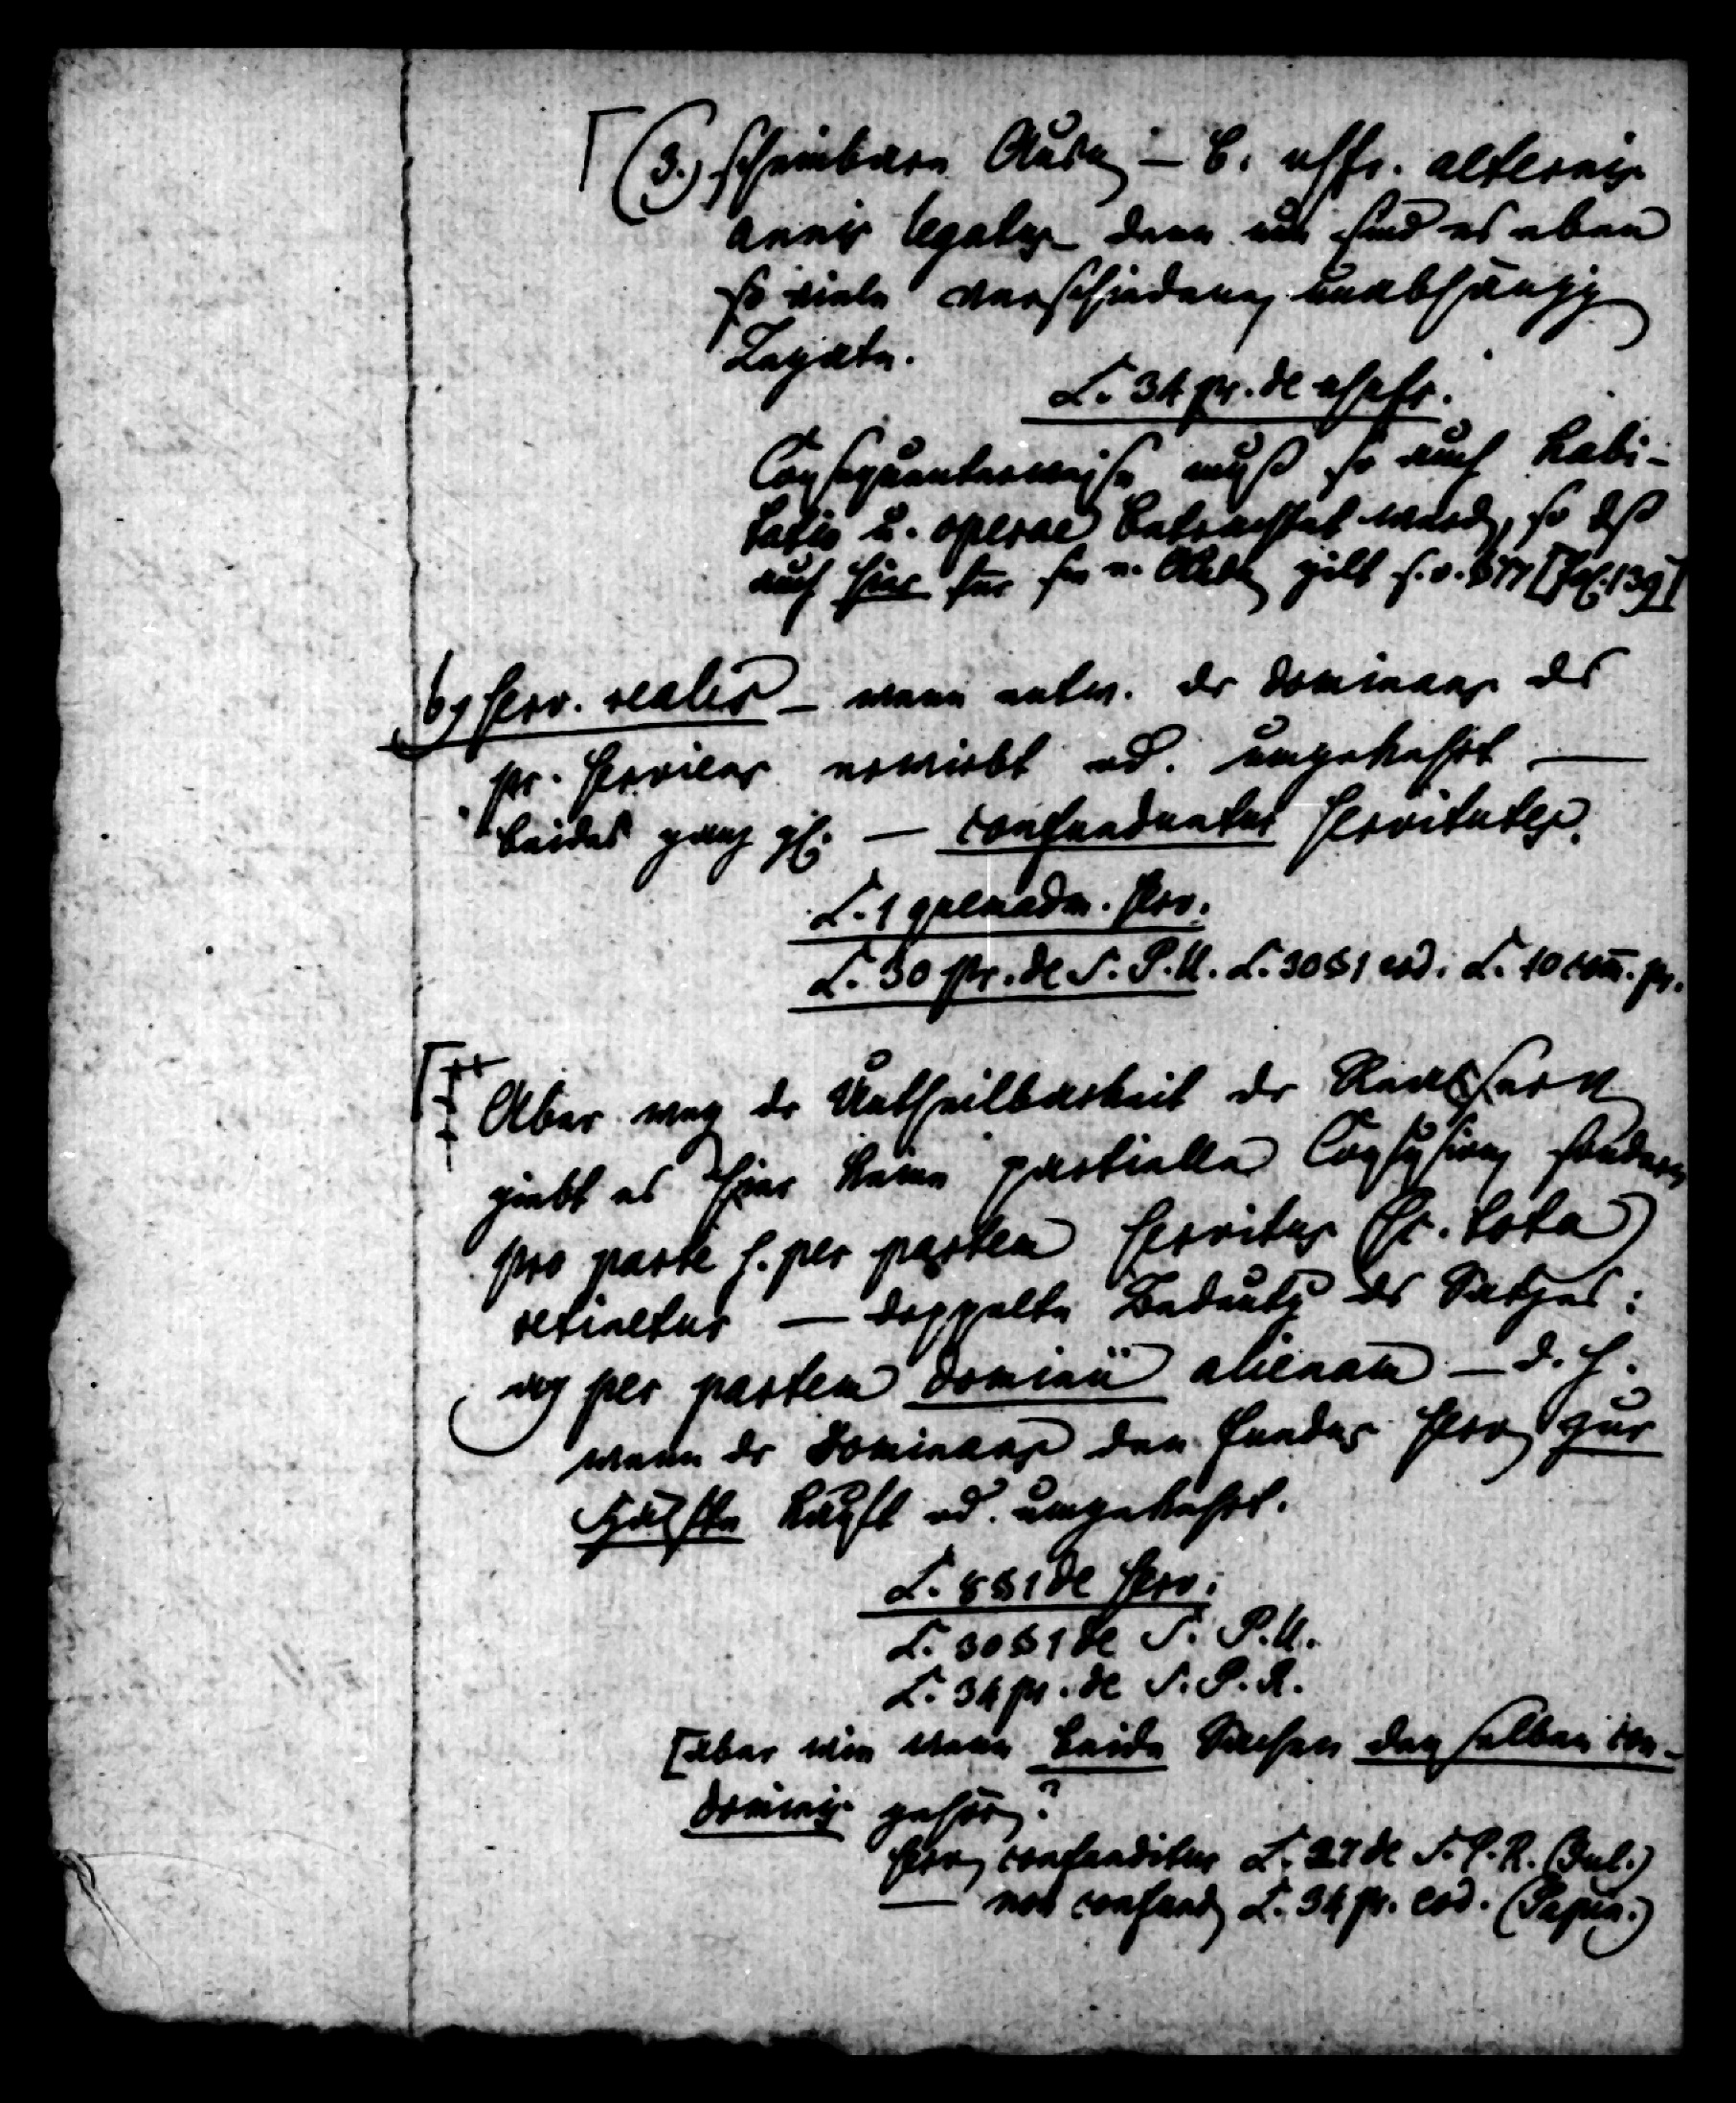 (3.) scheinbare Ausn. – b. usfr. alternis
annis legatus denn nun sind es eben
so viele verschiedene unabhängige
Legate.
L. 34 pr. de usufr.
Consequenterweise muß so auch habi-
tatio u. operae betrachtet werden, so dß
auch hier für sie n. Ausn. gilt s. o. §77 [Fol. 139]
b) serv. realis – wenn entw. der dominans des
pr. serviens erwirbt od. umgekehrt –
beides ganz gl. – confunduntur servitutes.
L. 1 quemadm. serv.
L. 30 pr. de S. P. U. L. 30 §1 eod. L. 10 com. pr.
Aber weg. der Untheilbarkeit der Realserv.
giebt es hier keine partielle Confusion sondern
pro parte s. per partem servitus (sc. tota)
retinetur – doppelte Bedeutg des Satzes:
α) per partem dominii alienam – d. h.
wenn der dominans den fundus serv. zur
Hälfte kauft od. umgekehrt.
L. 8 §1 de serv.
L. 30 §1 de S. P. U.
L. 34 pr. de S. P. R.
[aber wie wenn beide Sachen denselben con-
dominis gehören?
serv. confunditur L. 27 de S. P. R. (Jul.)
— non confund. L. 34 pr. eod. (Papin.)